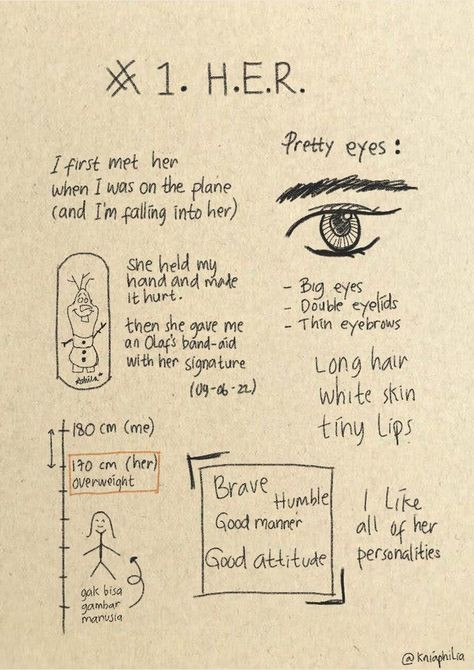 # 1. H.E.R.
I first met her
when I was on the plane
(and I'm falling into her)
Pretty eyes :
She held my
hand and made
it hurt.
then she gave me
an Olaf's band-aid
with her signature
(09-06-22)
- Big eyes
- Double eyelids
- Thin eyebrows
Long hair
white skin
tiny Lips
180 cm (me)
170 cm (her)
overweight
gak bisa
gambar
manusia
Brave
Humble
Good manner
Good attitude
I like
all of her
personalities
@kniaphilia